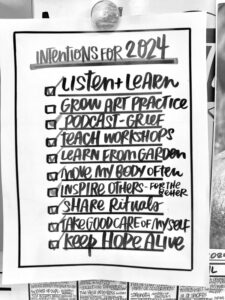 INTENTIONS FOR 2024
LISTEN + LEARN
GROW ART PRACTICE
PODCAST - GRIEF
TEACH WORKSHOPS
LEARN FROM GARDEN
MOVE MY BODY OFTEN
INSPIRE OTHERS - FOR THE BETTER
SHARE RITUALS
TAKE GOOD CARE OF MYSELF
KEEP HOPE ALIVE